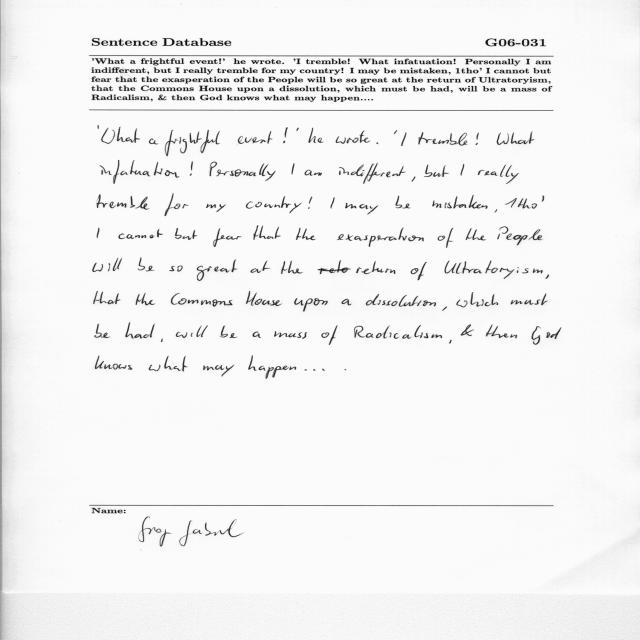 Sentence Database G06-031
'What a frightful event!' he wrote. 'I tremble! What infatuation! Personally I am
indifferent, but I really tremble for my country! I may be mistaken, 1tho' I cannot but
fear that the exasperation of the People will be so great at the return of Ultratoryism,
that the Commons House upon a dissolution, which must be had, will be a mass of
Radicalism, & then God knows what may happen....
'What a frightful event!' he wrote. 'I tremble! What
infatuation! Personally I am indifferent, but I really
tremble for my country! I may be mistaken, 1tho'
I cannot but fear that the exasperation of the People
will be so great at the return of Ultratoryism,
that the Commons House upon a dissolution, which must
be had, will be a mass of Radicalism, & then God
knows what may happen....
Name: